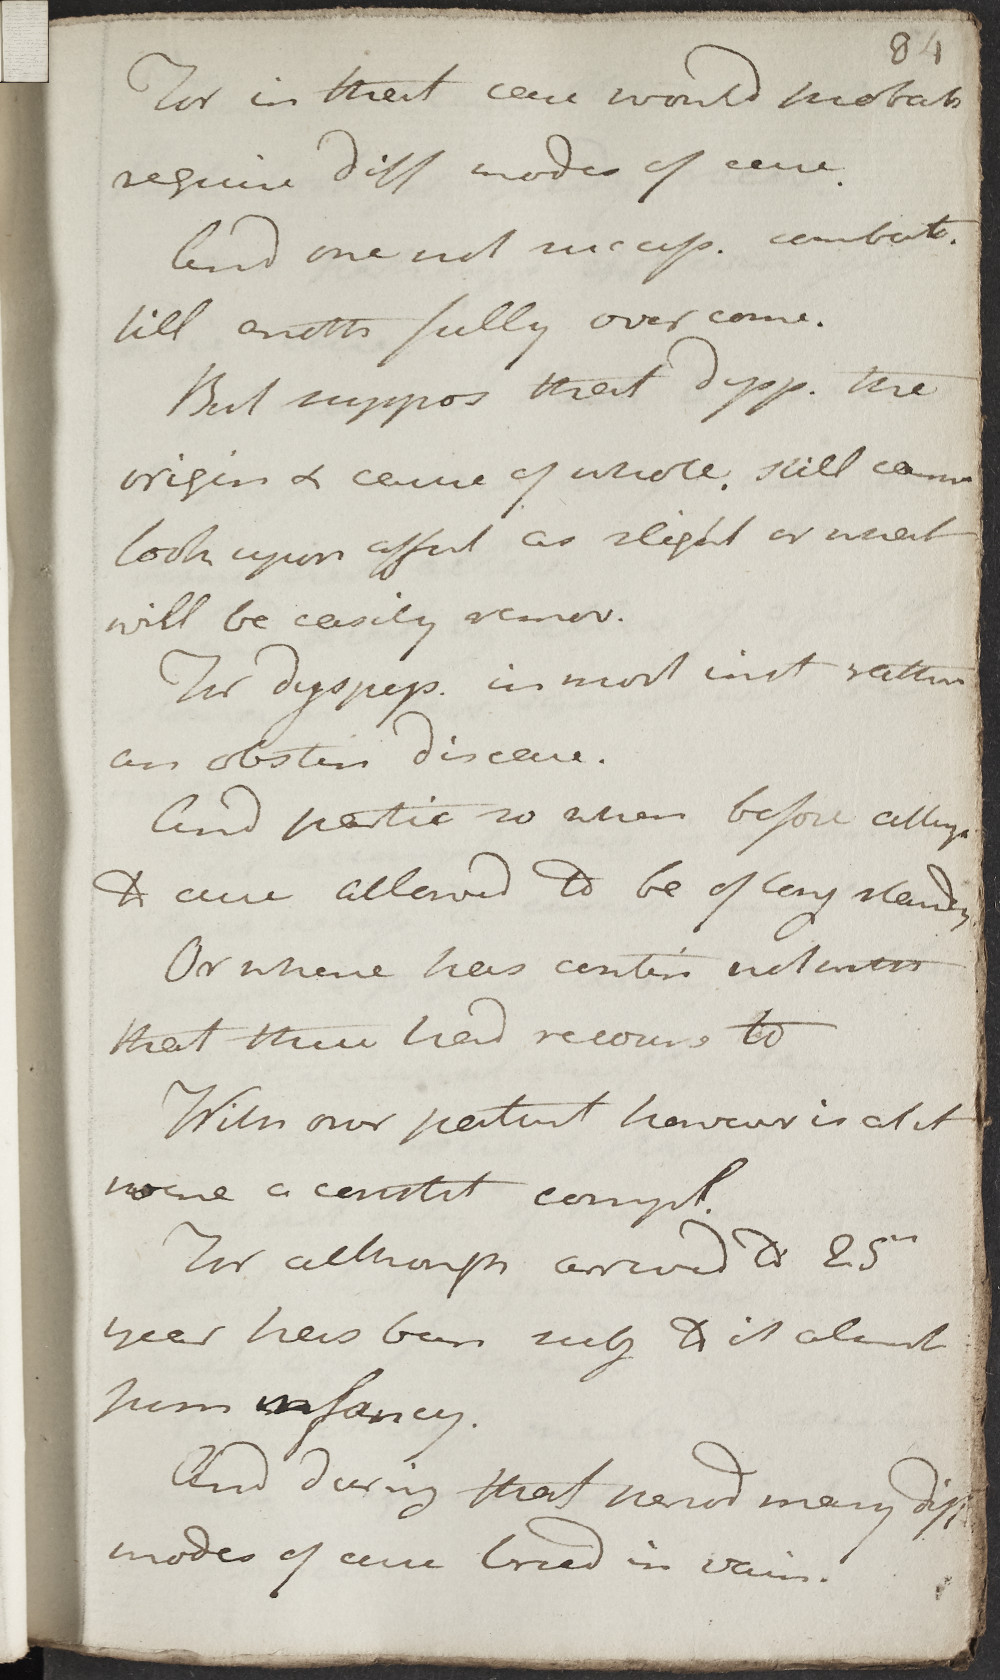 84
For in that case would probab
require diff modes of cure.
And one not success. combat.
till anoth fully over come.
But suppos that dysp. the
origin & cause of whole. still cann
look upon affect as slight or what
will be easily remov.
For dyspeps. in most inst rather
an obstin disease.
And partic so when before attemp
to cure allowed to be of long standing
Or where has contin notwith
that there had recourse to
With our patient however is at
none a constit compl.
For although arrived to 25th
year has been subj to it almost
from infancy.
And during that period many diff
modes of cure tried in vain.